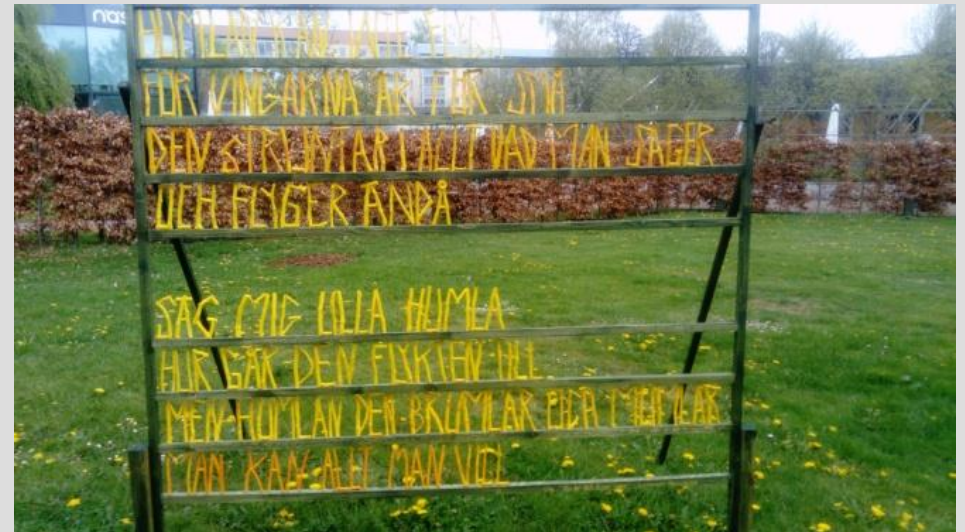 nas
HUMLAN KAN INTE FLYGA
FÖR VINGARNA ÄR FÖR SMÅ
DEN STRUNTAR I ALLT VAD MAN SÄGER
OCH FLYGER ÄNDÅ
SÄG MIG LILLA HUMLA
HUR GÅR DEN FLYKTEN TILL
MEN HUMLAN DEN BRUMLAR BARA
MAN KAN ALLT MAN VILL